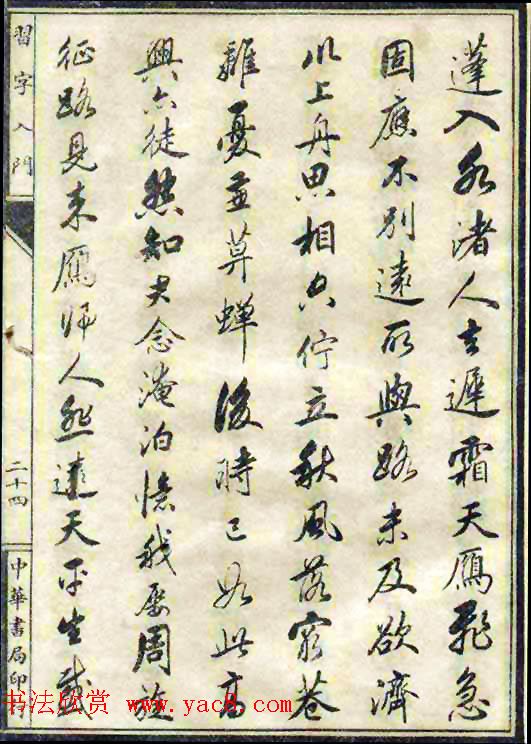 蓬入水渚人去遲霜天雁飛急
固應不別遠所與路未及欲濟
川上舟思相空佇立秋風落窮巷
離憂兼暮蟬後時已如此高
興亦徒然知君念淹泊憶我屢周旋
征路見來雁歸人悲遠天平生感
習字入門
二十四
中華書局印行
书法欣赏 www.yac8.com